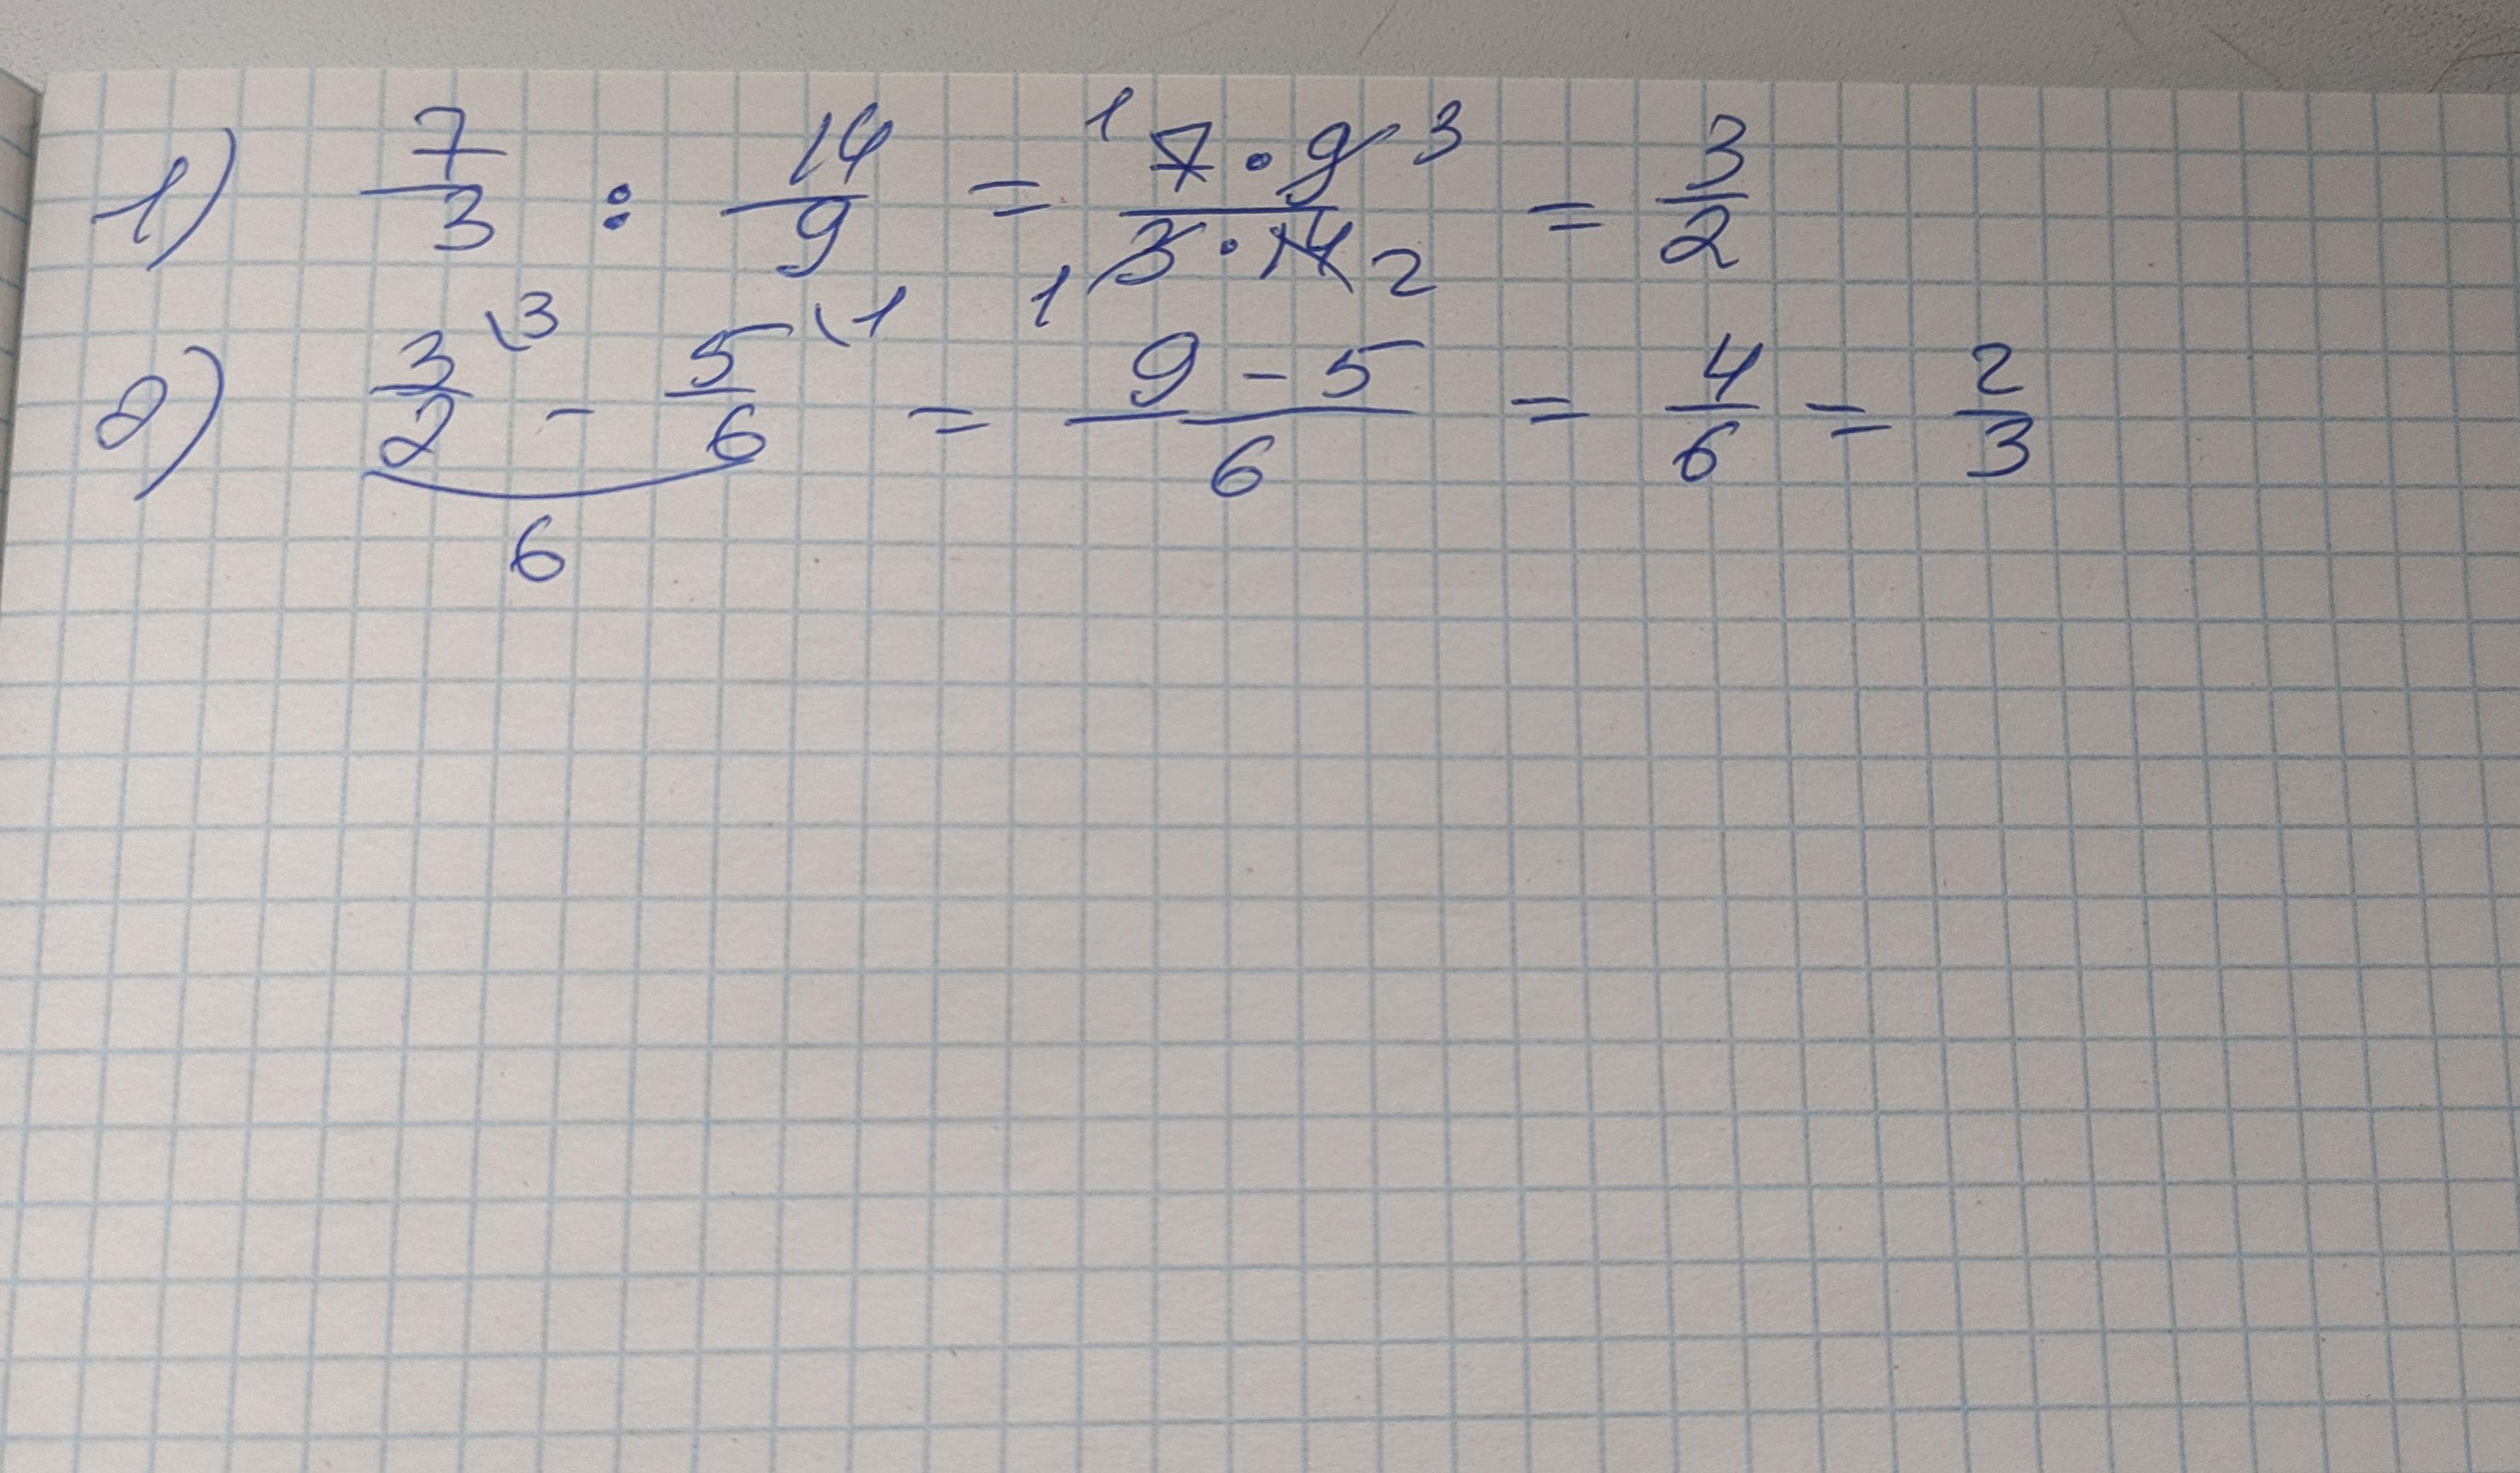 1) 7/3 : 14/9 = ¹ 7·9 ³ / ₁ 3·14 ₂ = 3/2
2) 3/2 \3 - 5/6 \1 = 9-5/6 = 4/6 = 2/3
6